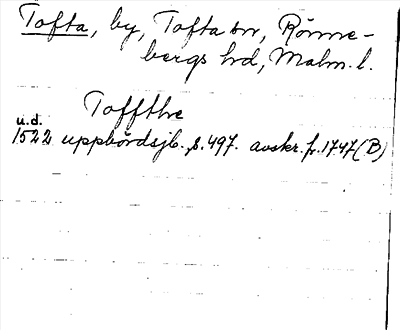 Tofta, by, Tofta sn, Rönne-
bergs hd, Malm. l.
Toffthe
u.d.
1522 uppbördsjb. s. 497. avskr. fr. 1747 (B)